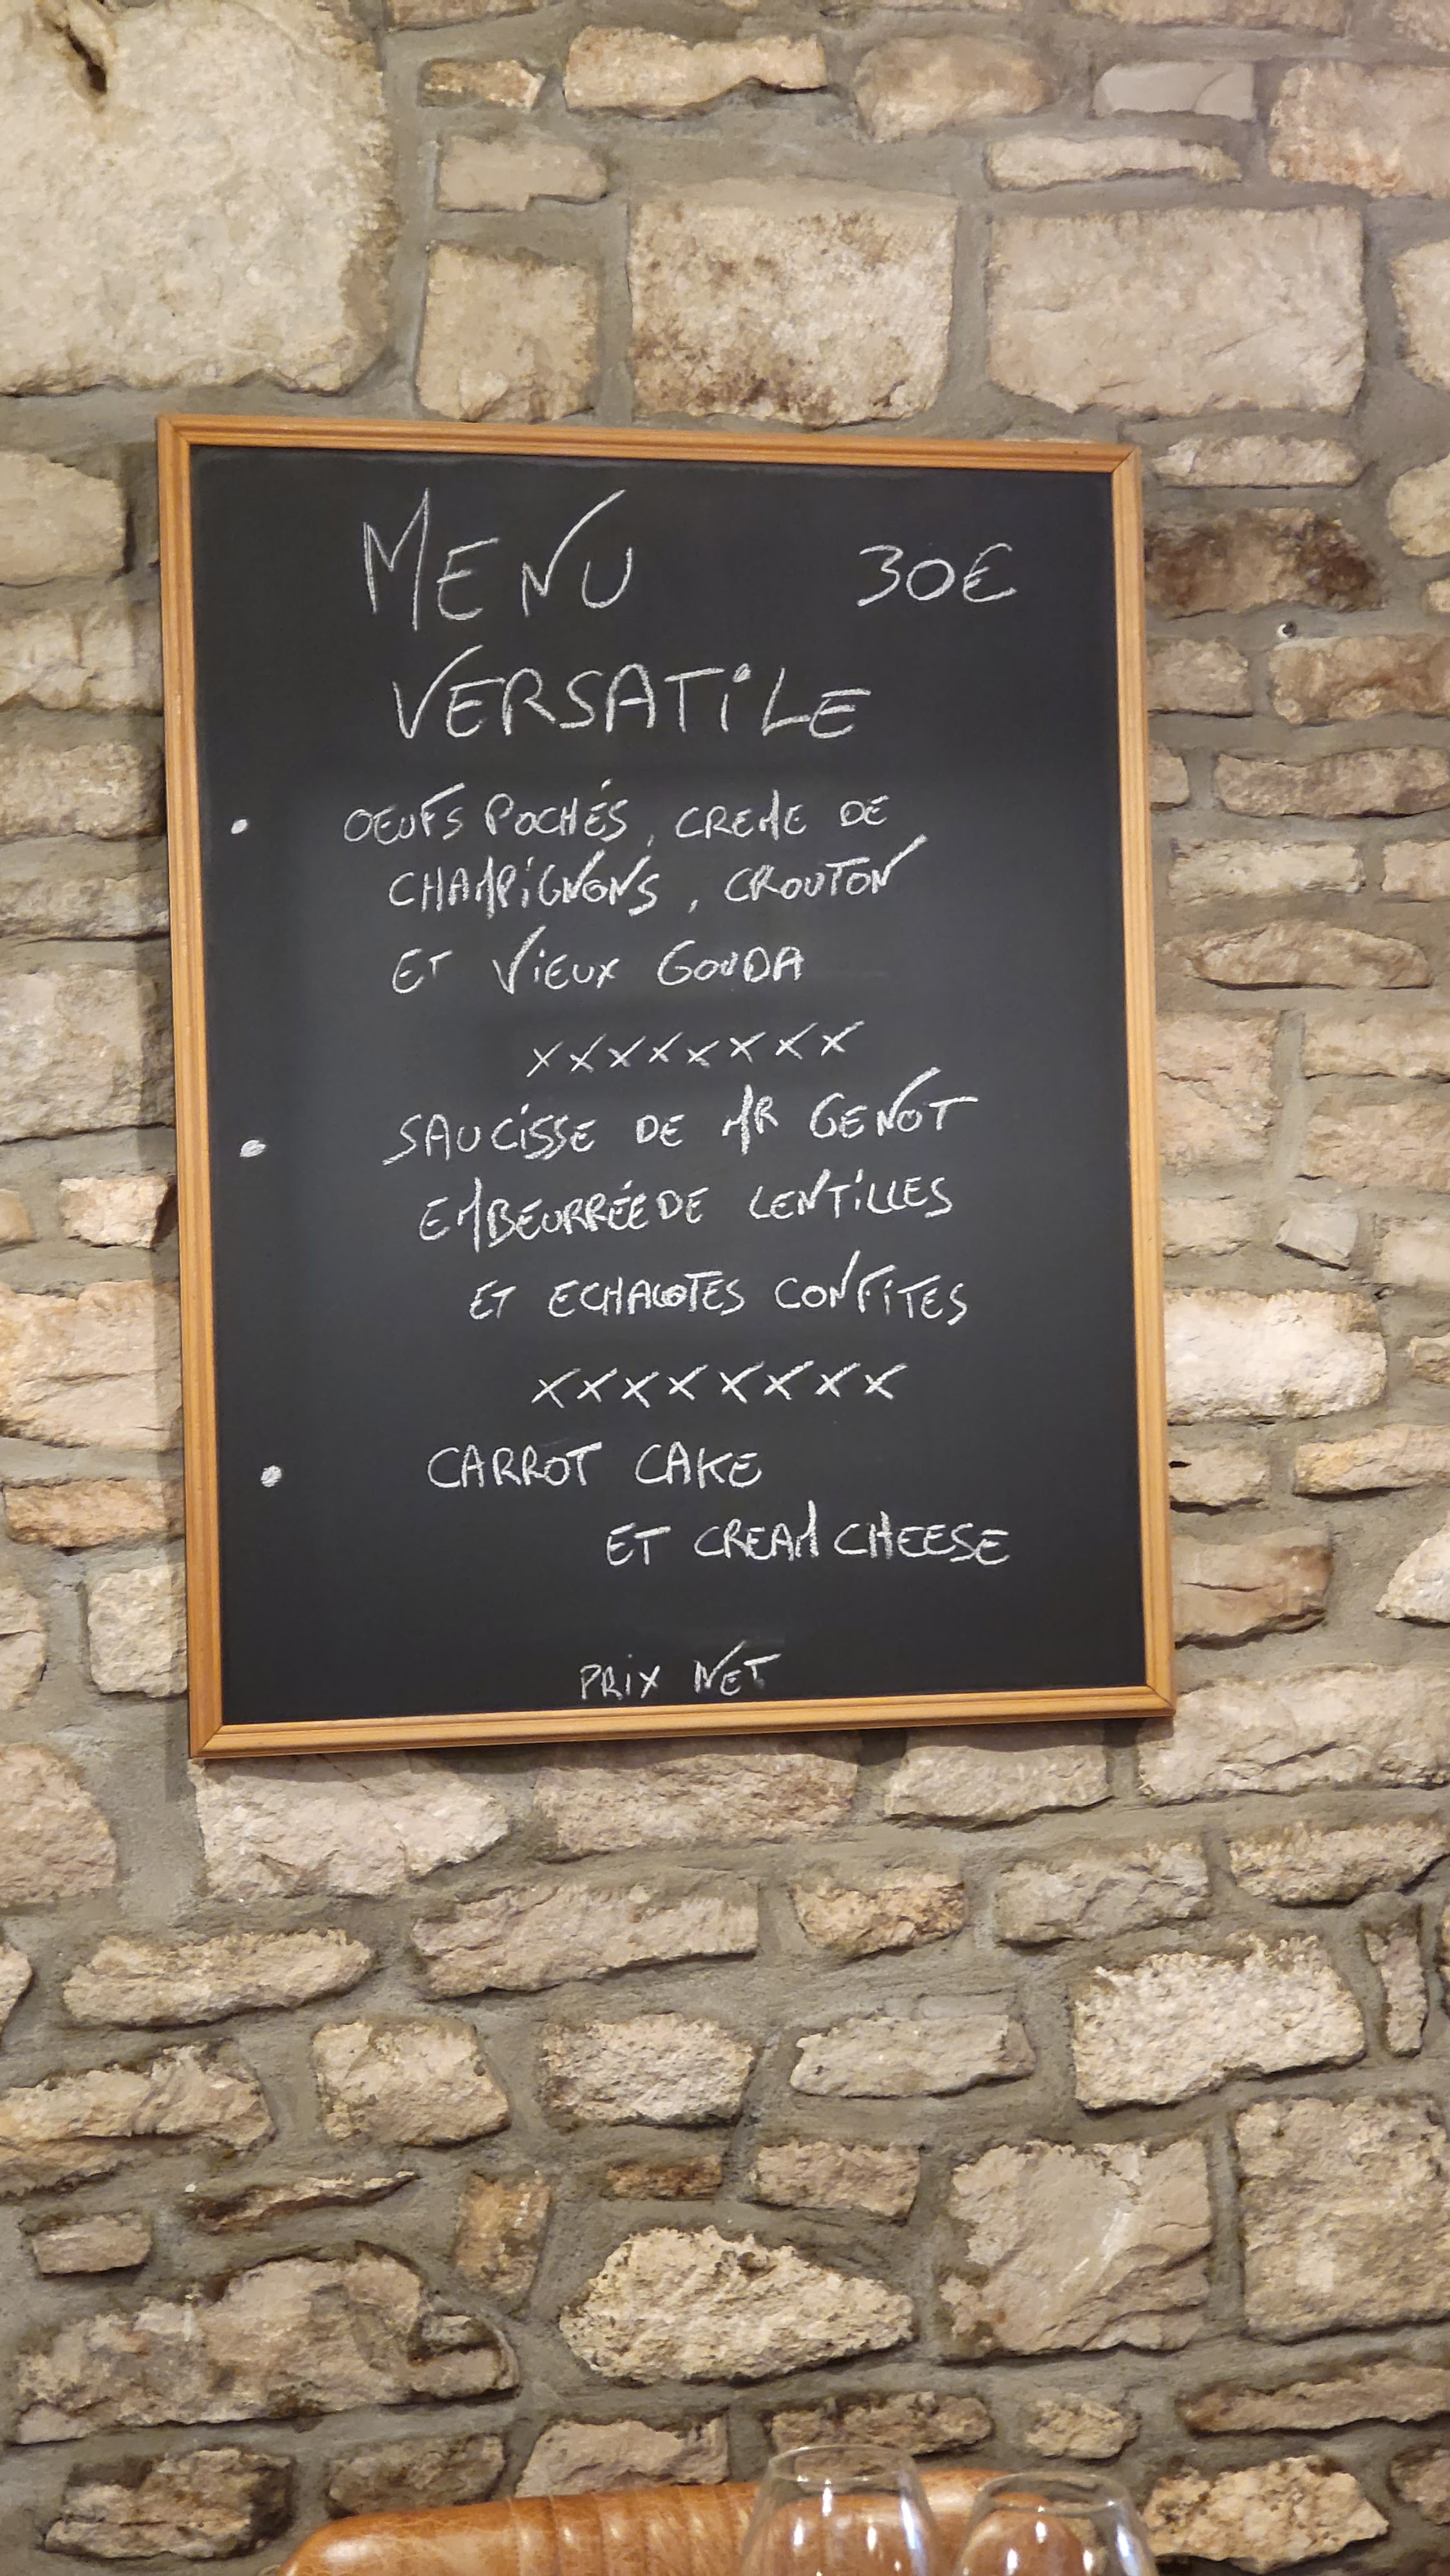 MENU 30€
VERSATiLE
• OEUFS POCHÉS, CREME DE
CHAMPiGNONS, CROUTON
ET ViEUX GOUDA
xxxxxxxx
• SAUCiSSE DE MR GENOT
EMBEURRÉE DE LENTiLLES
ET ECHALOTES CONFiTES
xxxxxxxx
• CARROT CAKE
ET CREAM CHEESE
PRiX NET